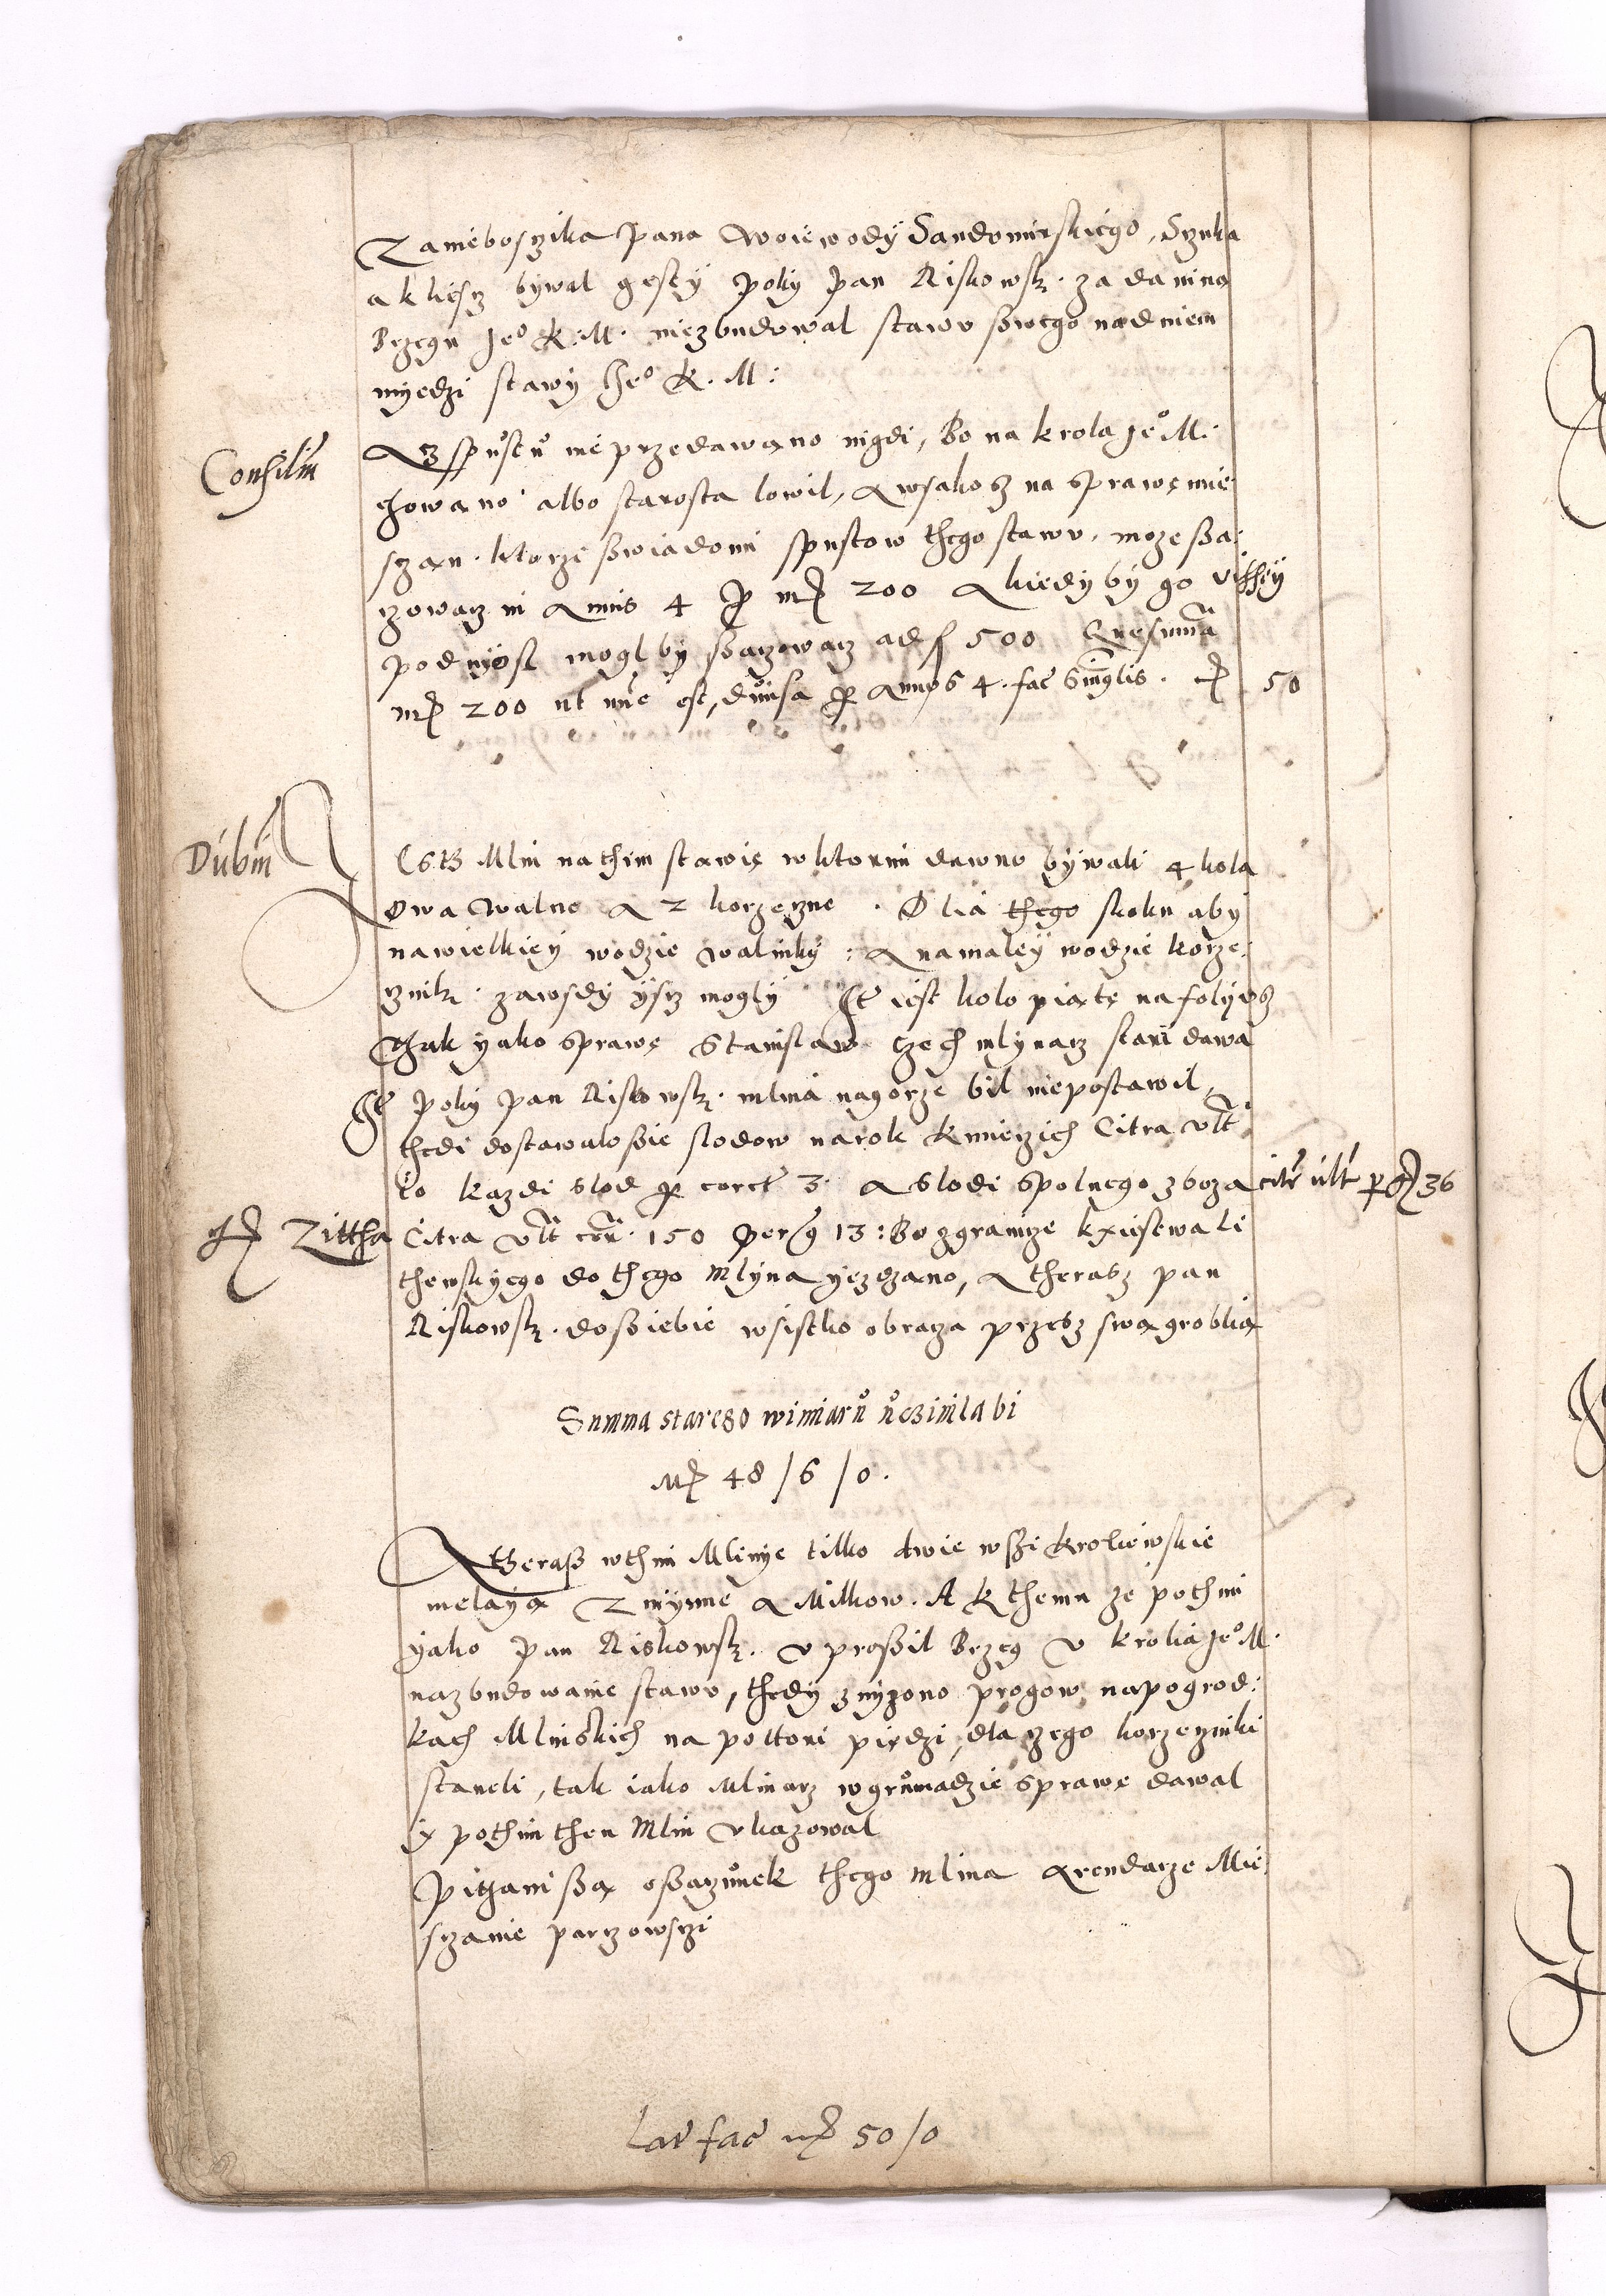 Zaniebosczika pana Woiewody Sandomirskiego, Sczuka
a klesz bywal gesty poky pan Riskowsk. za danina
Brzegu Jeo K. M. niezbudowal stawu swego nad niem
myedzi stawy Jeo K. M:
Consiliu
A z spustu nie przedawano nigdi, Bo na krola Jeo M.
chowano albo starosta lowil, A wsakosz na sprawe mie
sczan. ktorze swiadomi spustow thego stawu, moze sza
czowacz in Annis 4 p mr 200 A kiedyby go
podnyosl mogl by szaczowacz ad f 500 Que summa
mr 200 ut nunc est, diuisa p Annos 4. fac Singlis. 50
Dubiu
Jest Mlin nathim stawie wktorim dawno bywali 4 kola
Dwa Walne A 2 korzeczne. Dlia thego skoku aby
nawielkiey wodzie walniky: A namaley wodzie korze
cznik. zawsdy yscz mogly It iest kolo piate nafolyusz
Thak yako sprawe Stanislaw Czech mlynarz stari dawa
It poky pan Riskowsk. mlina nagorze bil niepostawil,
thedi dostawalo sie slodow narok kmieczich Citra vlt
to kazdi slod p corct 3. A slodi spolnego zboza citr ult p 36
Zittha Citra vlt 150 per g 13: Bo zgranicze kxiestwa Li
thewskyego do thego Mlyna yezdzano, A therasz pan
Riskowsk. dosiebie wsistko obracza przesz swa groblia
Summa starego wimiaru uczinila bi
Mr 48 / 6 / 0.
A Therasz wthim Mlinye tilko dwie wszi krolewskie
melaya Zminne A Milkow. A k themu ze pothim
yako pan Riskowsk. uprosil Brzeg u krolia Jeo M.
nazbudowanie stawu, thedy znyzono progow napogrod:
kach Mlinskich na poltori piedzi, dla czego korzeczniki
staneli, tak iako Mlinarz wgrumadzie sprawe dawal
y pothim then Mlin ukazowal
Pithani sza oszaczunek thego mlina Arendarze Mie
sczanie parczowsczi
Lat fac mr 50 / 0